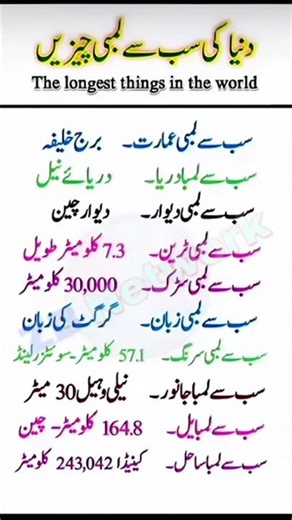 دنیا کی سب سے لمبی چیزیں
The longest things in the world
سب سے لمبی عمارت۔ برج خلیفہ
سب سے لمبا دریا۔ دریائے نیل
سب سے لمبی دیوار۔ دیوار چین
سب سے لمبی ٹرین۔ 7.3 کلومیٹر طویل
سب سے لمبی سڑک۔ 30,000 کلومیٹر
سب سے لمبی زبان۔ گرگٹ کی زبان
سب سے لمبی سرنگ۔ 57.1 کلومیٹر۔سوئٹزرلینڈ
سب سے لمبا جانور۔ نیلی وہیل 30 میٹر
سب سے لمبا پل۔ 164.8 کلومیٹر۔ چین
سب سے لمبا ساحل۔ کینیڈا 243,042 کلومیٹر